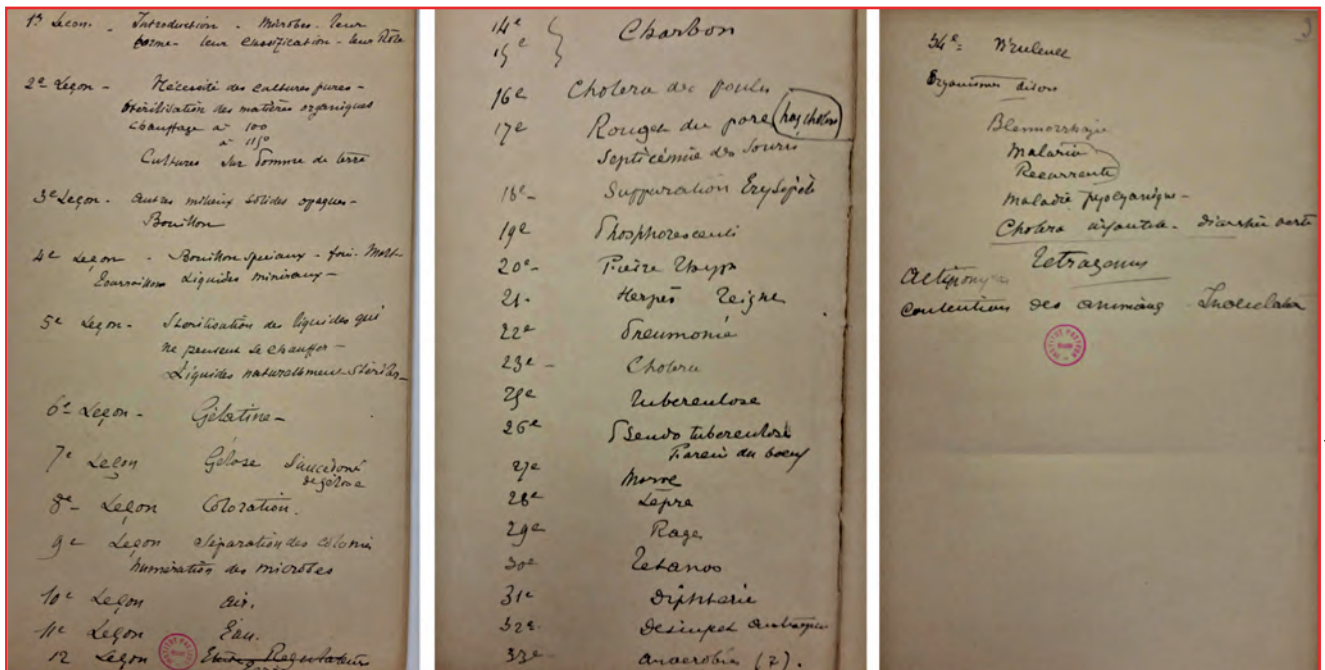 1re Leçon - Introduction - Microbes - leur
forme - leur classification - leur Rôle
2e Leçon - Nécessité des cultures pures -
Stérilisation des matières organiques
Chauffage à 100
à 115°
Cultures sur Pomme de terre
3e Leçon - Autres milieux solides opaques -
Bouillon
4e Leçon - Bouillon spéciaux - foin - Malt
Touraillon Liquides minéraux -
5e Leçon - Stérilisation des liquides qui
ne peuvent se chauffer -
Liquides naturellement Stériles -
6e Leçon - Gélatine -
7e Leçon Gélose Succédané
de gélose
8e Leçon Coloration.
9e Leçon Séparation des colonies
numération des microbes
10e Leçon Air.
11e Leçon Eau.
12 Leçon Etuves Regulateurs
14e
15e } Charbon
16e Cholera des poules
17e Rouget du porc hog cholera
Septicémie des souris
18e - Suppuration Erysipèle
19e Phosphorescents
20e - Fièvre Typh
21 - Herpès Teigne
22e Pneumonie
23e - Cholera
25e Tuberculose
26e Pseudo tuberculose
Farcin du boeuf
27e Morve
28e Lèpre
29e Rage
30e Tetanos
31e Diphterie
32e -
33e anaerobies (2).
3
34e = Virulence
Organismes divers
Blennorrhagie
Malaria
Recurrente
Maladie pyocyanique -
Cholera infantile - diarrhée verte
Tetragenus
Contention des animaux - Inoculation
INSTITUT PASTEUR